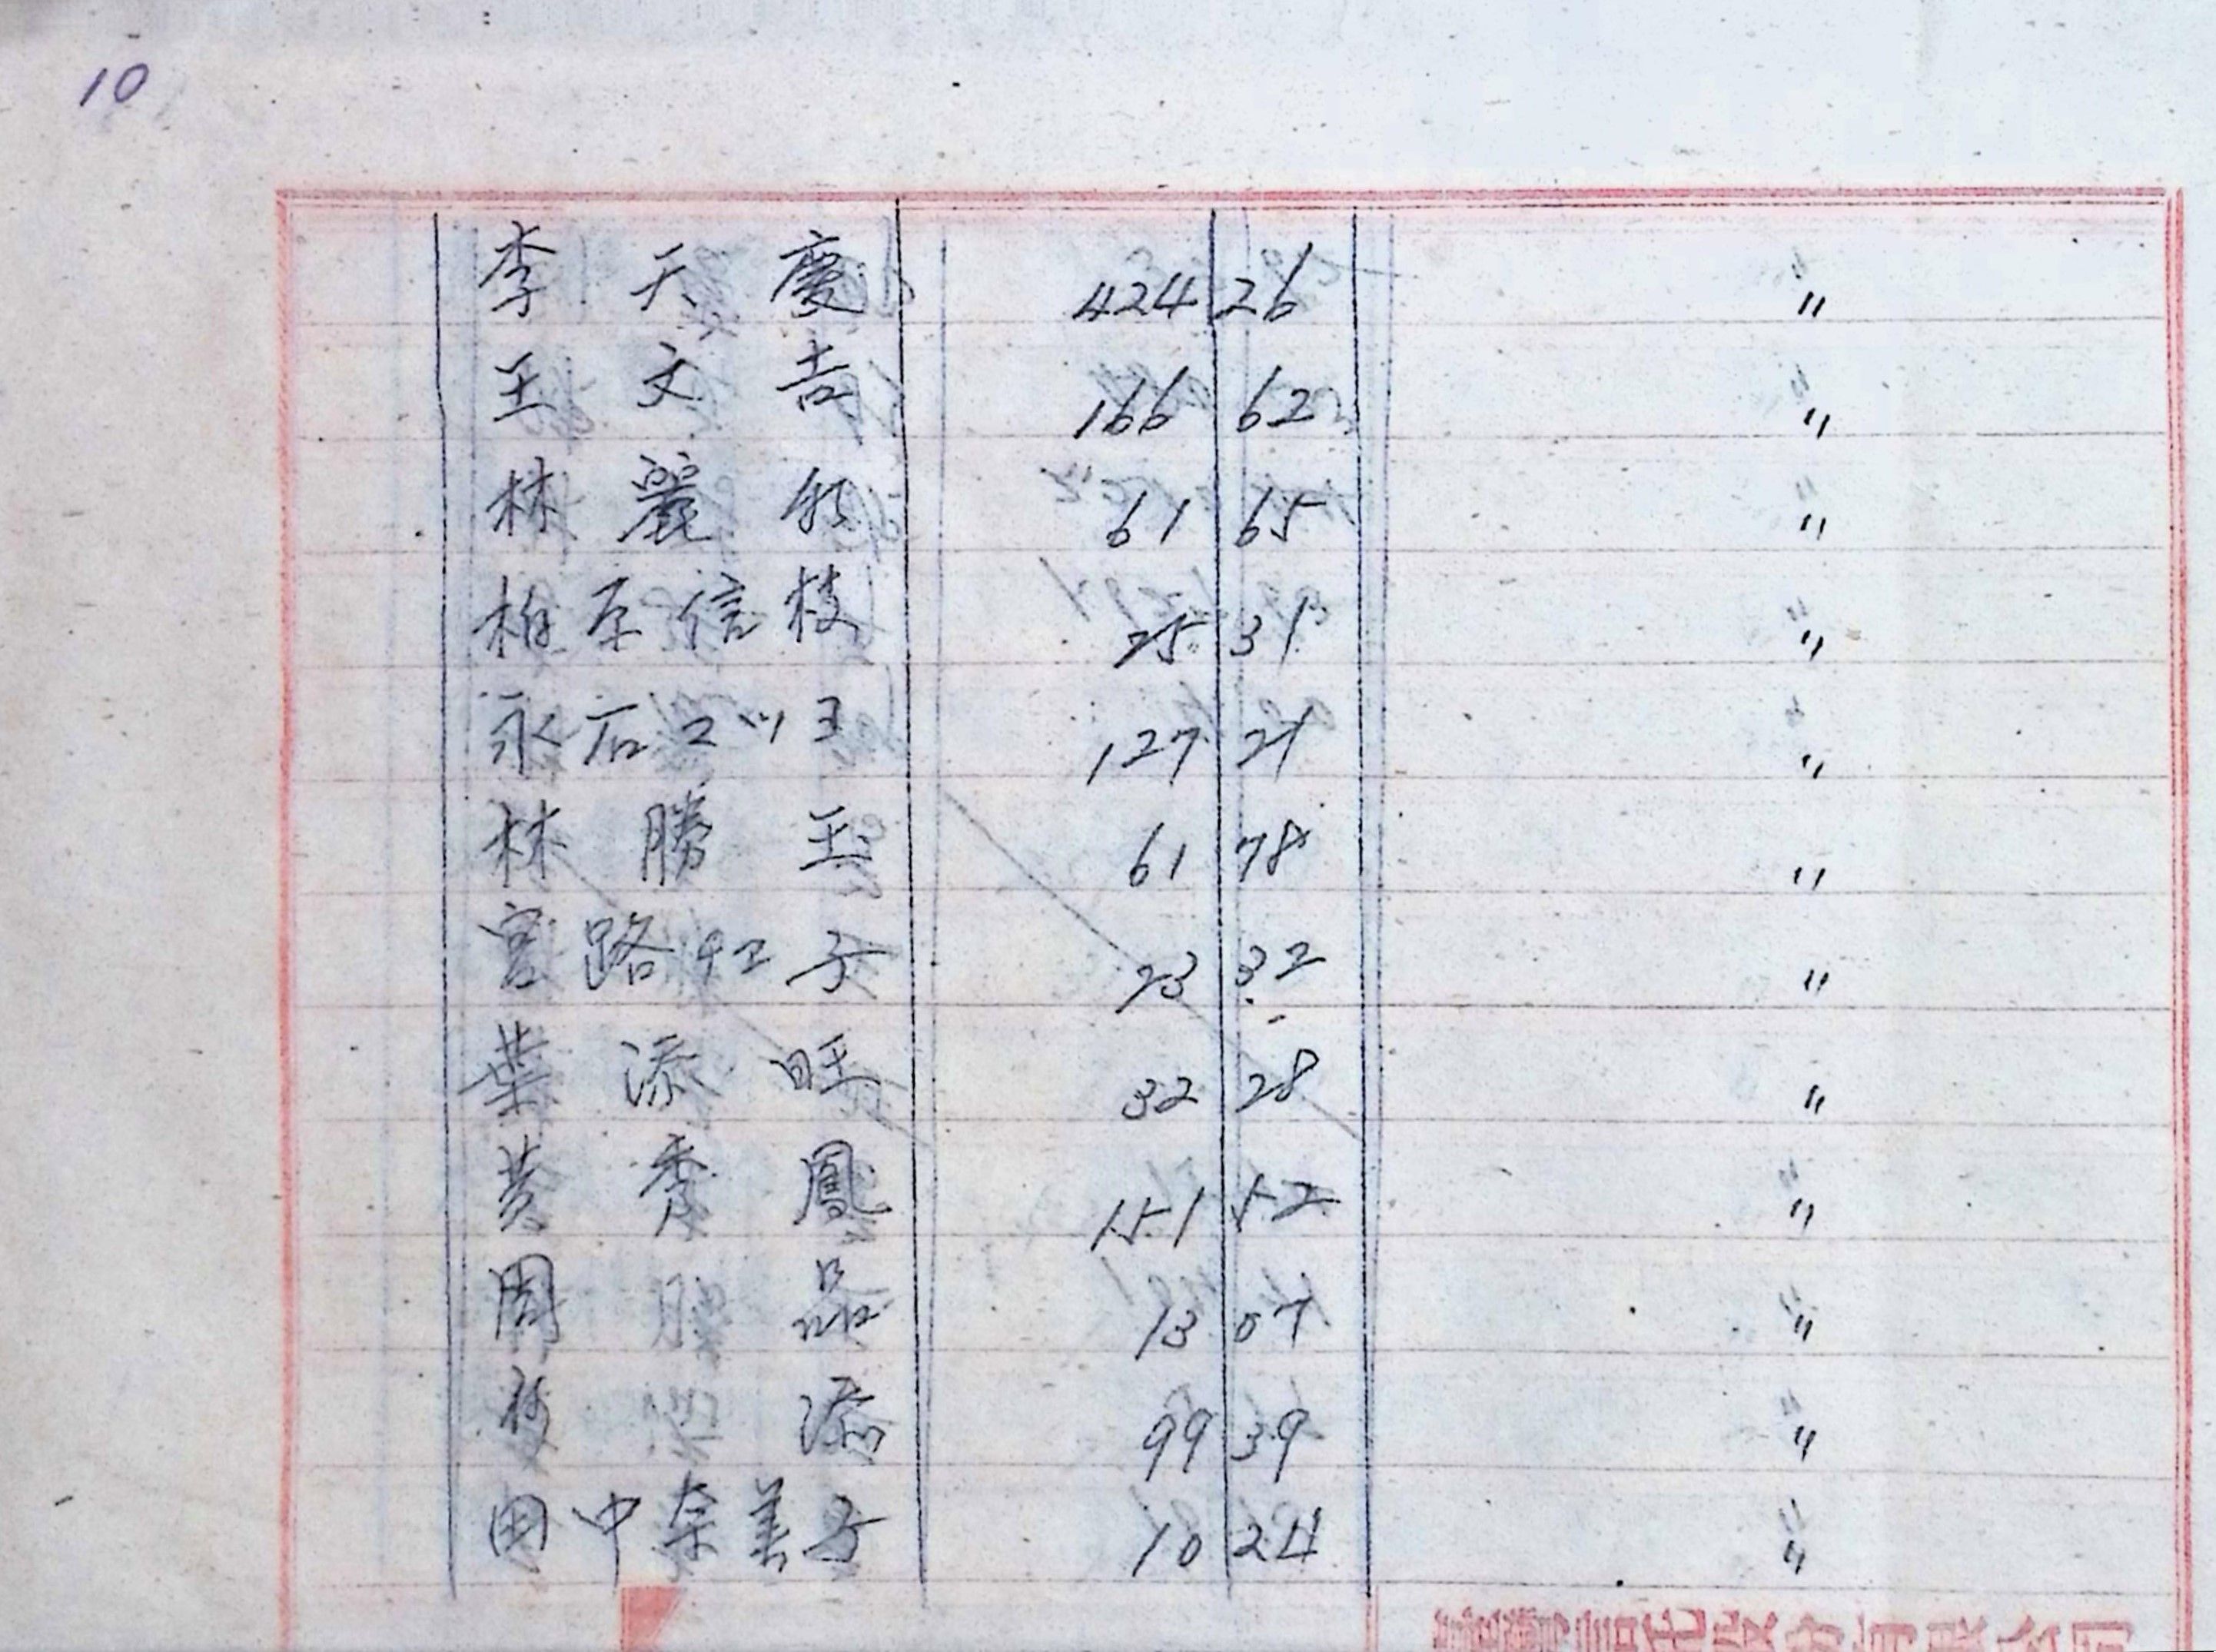 10
李天慶 424 26 〃
王文吉 166 62 〃
林麗 61 65 〃
柏原信枝 25 31 〃
永石ミツヨ 127 21 〃
林勝玉 61 78 〃
宮路紅子 23 32 〃
葉添旺 32 28 〃
黄秀鳳 151 52 〃
周 品 13 07 〃
添 99 39 〃
田中奈美子 10 24 〃